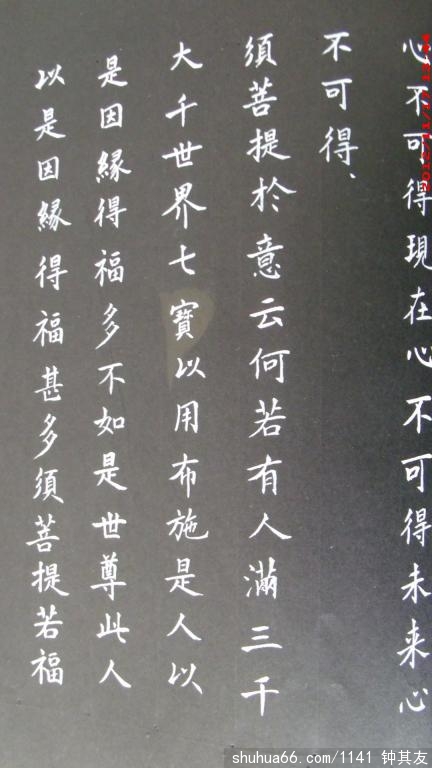 心不可得現在心不可得未来心
不可得、
須菩提於意云何若有人滿三千
大千世界七寶以用布施是人以
是因緣得福多不如是世尊此人
以是因緣得福甚多須菩提若福
shuhua66.com/1141 钟其友